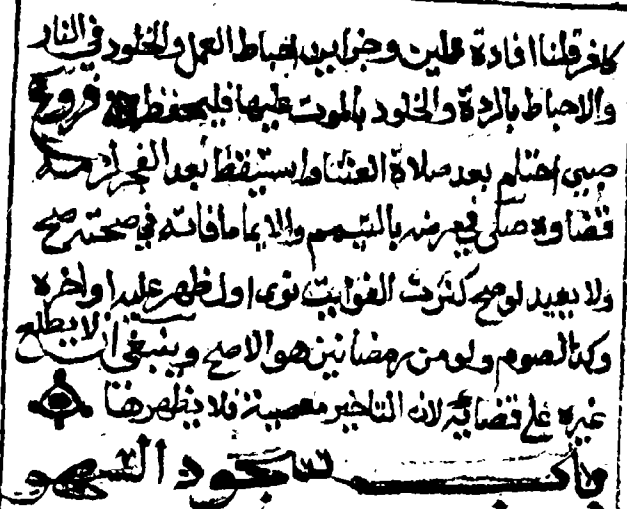 كافر قلنا افادة عملين وجزايين احباط العمل والخلود في النار
والاحباط بالردة والخلود بالموت عليها فليحفظ فروع
صبي احتلم بعد صلاة العشا واستيقظ بعد الفجر لزمه
قضاوه صلى في مرضه بالتيمم والايما ما فاته في صحته صح
ولا يعيد لو صح كثرت الفوايت نوى اول ظهر عليه او اخره
وكذا الصوم ولو من رمضانين هو الاصح وينبغي ان لا يطلع
غيره على قضائه لان التاخير معصية فلا يظهرها
باب سجود السهو